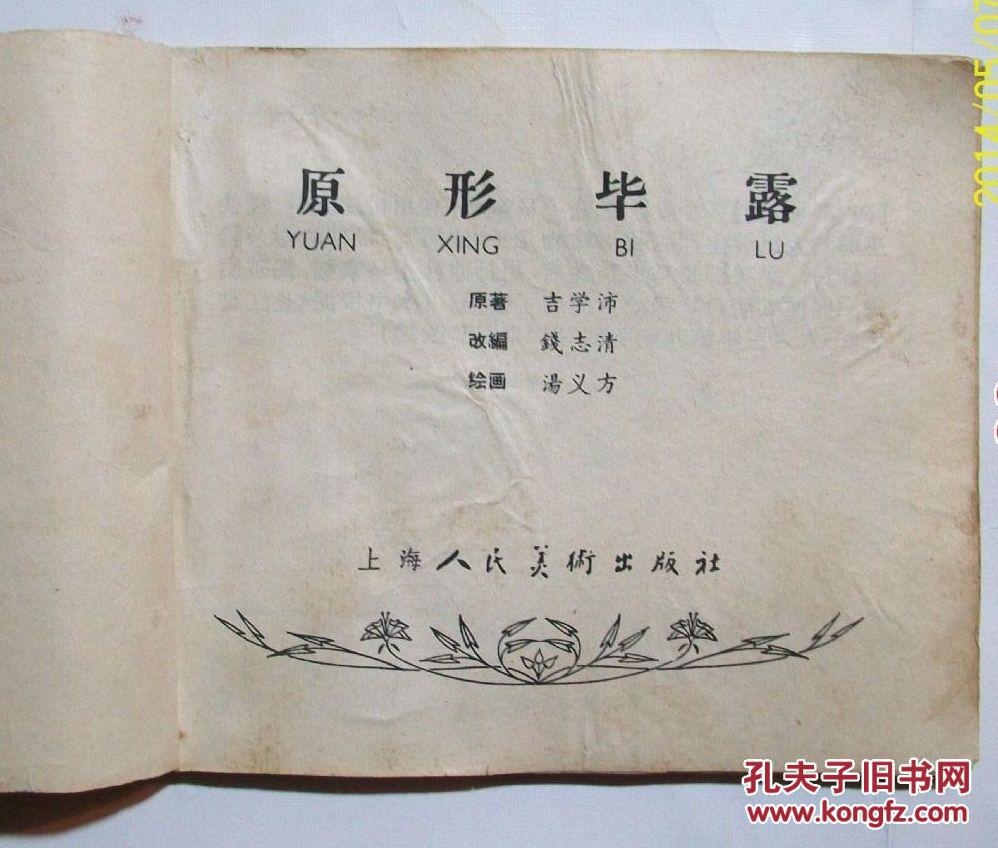 原形毕露
YUAN XING BI LU
原著 吉学沛
改編 錢志清
绘画 湯义方
上海人民美術出版社
孔夫子旧书网
www.kongfz.com